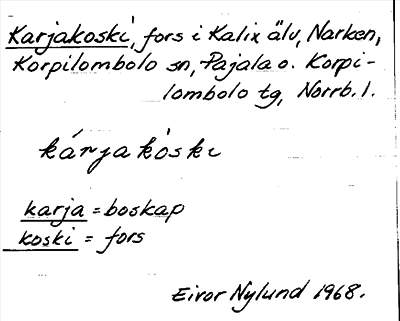 Karjakoski, fors i Kalix älv, Narken,
Korpilombolo sn, Pajala o. Korpi-
lombolo tg, Norrb. l.
kárjakòski
karja = boskap
koski = fors
Eivor Nylund 1968.